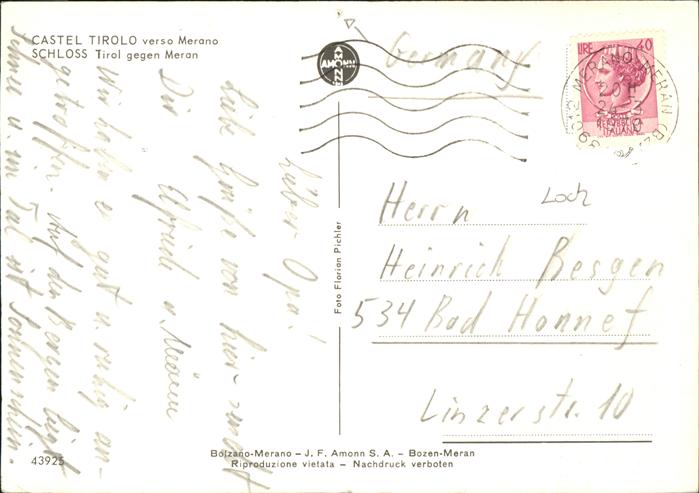 CASTEL TIROLO verso Merano
SCHLOSS Tirol gegen Meran
AMONN
AMONN
Germany
LIRE 40
39012 MERANO MERAN (BZ)
Lieber Opa!
Liebe Grüße von hier sendet
Dir
Wir haben es gut u. ruhig an-
getroffen. Auf den Bergen liegt
Schnee u. im Tal ist Sonnenschein.
Foto Florian Pichler
Loch
Herrn
Heinrich Besgen
534 Bad Honnef
Linzerstr. 10
43925
Bolzano-Merano – J. F. Amonn S. A. – Bozen-Meran
Riproduzione vietata – Nachdruck verboten